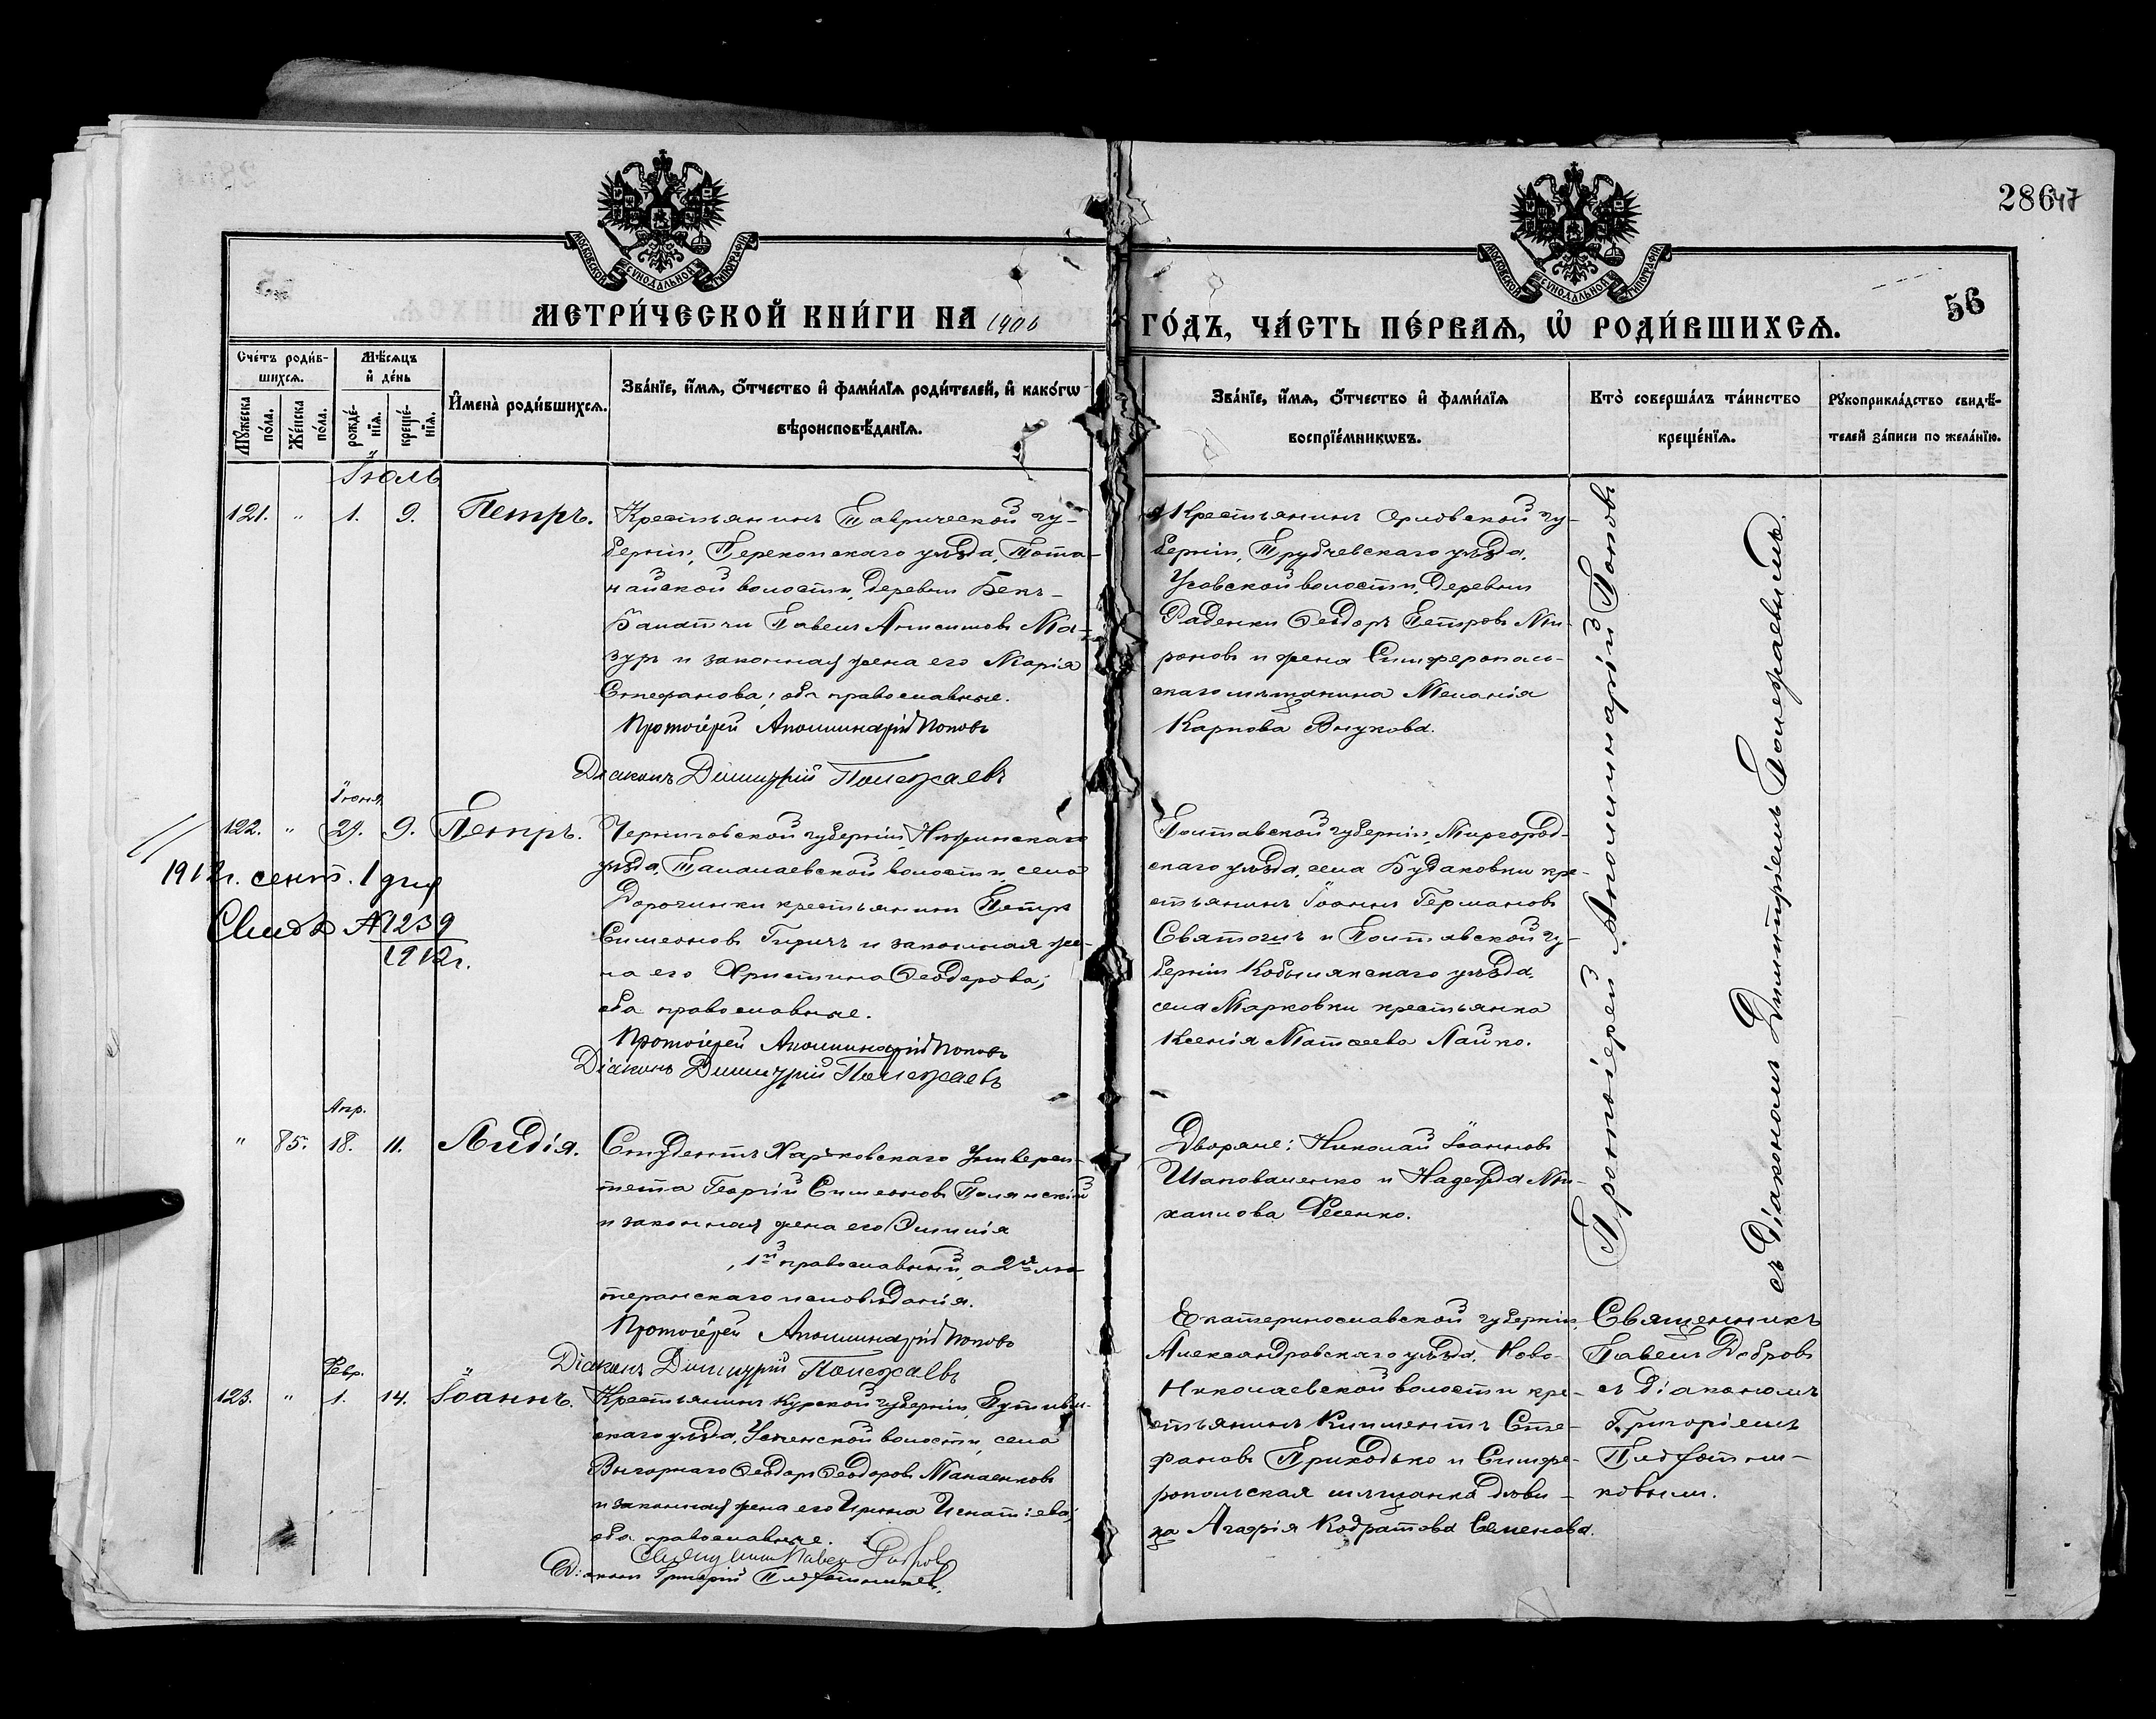 28647
56
МОСКОВСКОЙ СУНОДАЛЬНОЙ ТИПОГРАФІИ
МОСКОВСКОЙ СУНОДАЛЬНОЙ ТИПОГРАФІИ
МЕТРИ́ЧЕСКОЙ КНИ́ГИ НА 1906 ГО́ДЪ, ЧА́СТЬ ПЕ́РВАѦ, Ѽ РОДИ́ВШИХСѦ.
Сче́тъ роди́в-
шихсѧ.
Мѣ́сѧцъ
и҆ де́нь
Мꙋ́жеска по́ла.
Же́нска по́ла.
рожде́-
нїѧ.
креще́-
нїѧ.
И҆мена̀ роди́вшихсѧ.
Зва́нїе, и҆́мѧ, ѻ҆́тчество и҆ фами́лїѧ роди́телей, и҆ како́гѡ
вѣроисповѣ́данїѧ.
Зва́нїе, и҆́мѧ, ѻ҆́тчество и҆ фами́лїѧ
воспрїе́мникѡвъ.
Кто̀ соверша́лъ та́инство
креще́нїѧ.
Рꙋкоприкла́дство свидѣ́-
телей за́писи по жела́нїю.
Іюль
121. " 1. 9. Петръ.
Крестьянинъ Таврической гу-
берніи, Перекопскаго уѣзда,
найской волости, деревни Бекъ-
Павелъ Ма-
зуръ и законная жена его Марія
Стефанова; оба православные.
Протоіерей Аполлинарій Поповъ
Діаконъ Димитрій Полежаевъ
Крестьянинъ Орловской гу-
берніи, Трубчевскаго уѣзда,
Усовской волости, деревни
Раденки Ѳеодоръ Петровъ Ми-
роновъ и жена Симферополь-
скаго мѣщанина Меланія
Карпова Внукова.
Протоіерей Аполлинарій Поповъ
съ Діакономъ Димитріемъ Полежаевымъ.
Іюня
122. " 29. 9. Петръ.
1912г. сент. 1 дня
Свид № 1239
1912г.
Черниговской губерніи, Нѣжинскаго
уѣзда, Талалаевской волости, села
Дорогинки крестьянинъ Петръ
Симеоновъ и законная же-
на его Христина Ѳеодорова;
оба православные.
Протоіерей Аполлинарій Поповъ
Діаконъ Димитрій Полежаевъ
Полтавской губерніи, Миргород-
скаго уѣзда, села Будаковки кре-
стьянинъ Іоаннъ Германовъ
и Полтавской гу-
берніи Кобылякскаго уѣзда,
села Марковки крестьянка
Ксенія Матѳеева Лайко.
Апр.
" 85. 18. 11. Лидія.
Студентъ Харьковскаго Универси-
тета Георгій Симеоновъ Полянскій
и законная жена его Эмилія
, 1й православный, а 2я лю-
теранскаго исповѣданія.
Протоіерей Аполлинарій Поповъ
Діаконъ Димитрій Полежаевъ
Дворяне: Николай Іоанновъ
Шаповаленко и Надежда Ми-
хаилова Фесенко.
Февр.
123. " 1. 14. Іоаннъ.
Крестьянинъ Курской губерніи, Путивль-
скаго уѣзда, Успенской волости, села
Выгорнаго Ѳеодоръ Ѳеодоровъ Манаенковъ
и законная жена его Ирина Игнатіева;
оба православные.
Священникъ Павелъ Добровъ
Діаконъ Григорій
Екатеринославской губерніи,
Александровскаго уѣзда, Ново-
Николаевской волости кре-
стьянинъ Климентъ Сте-
фановъ Приходько и Симфе-
ропольская мѣщанка дѣви-
ца Агафія Кодратова Семенова.
Священникъ
Павелъ Добровъ
съ діакономъ
Григоріемъ